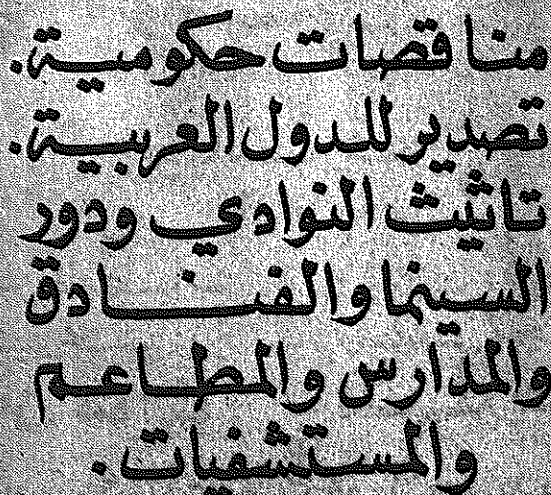 مناقصات حكومية.
تصدير للدول العربية.
تاثيث النوادي ودور
السينما والفنادق
والمدارس والمطاعم
والمستشفيات.